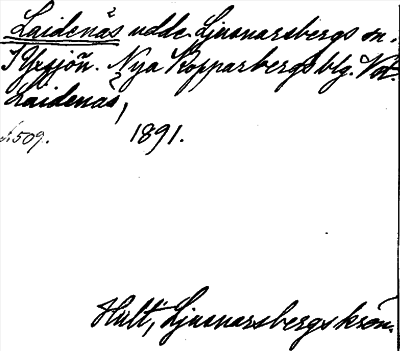 Laidenäs udde. Ljusnarsbergs sn.
I Yxsjön. Nya Kopparbergs blg. Vst.
Laidenäs,
N. 509. 1891.
Hult, Ljusnarsbergs krön.